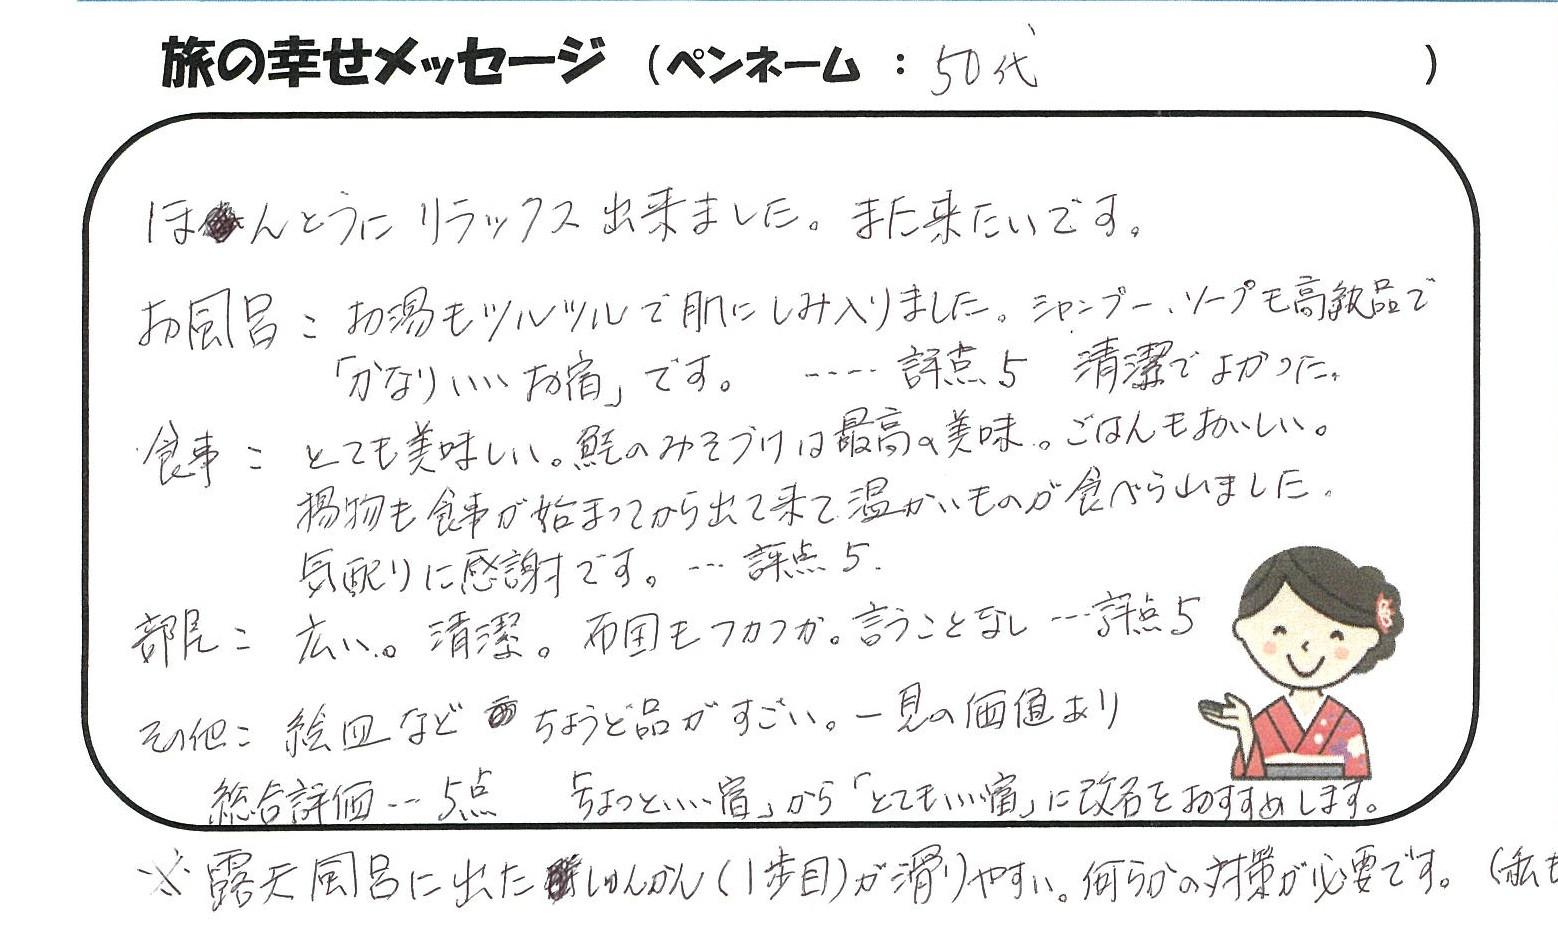 旅の幸せメッセージ （ペンネーム ： 50代 ）
ほんとうにリラックス出来ました。また来たいです。
お風呂： お湯もツルツルで肌にしみ入りました。シャンプー、ソープも高級品で
「かなりいいお宿」です。 ---- 評点5 清潔でよかった。
食事： とても美味しい。鮭のみそづけは最高の美味。ごはんもおいしい。
揚物も食事が始まってから出て来て温かいものが食べられました。
気配りに感謝です。 --- 評点5.
部屋： 広い。清潔。布団もフカフカ。言うことなし --- 評点5
その他： 絵皿など ちょうど品がすごい。一見の価値あり
総合評価 --- 5点 ちょっといい宿」から「とてもいい宿」に改名をおすすめします。
※ 露天風呂に出たしゅんかん（1歩目）が滑りやすい。何らかの対策が必要です。（私も